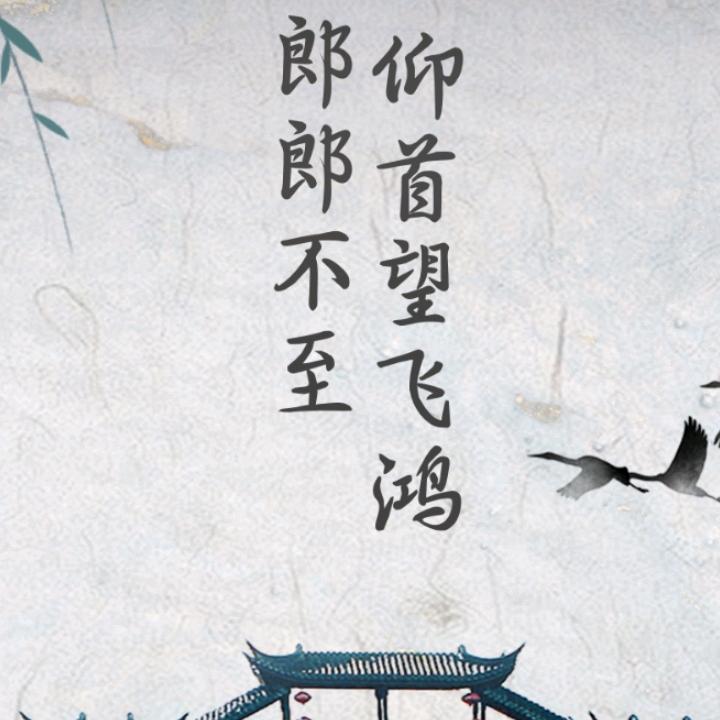 仰首望飞鸿
郎郎不至